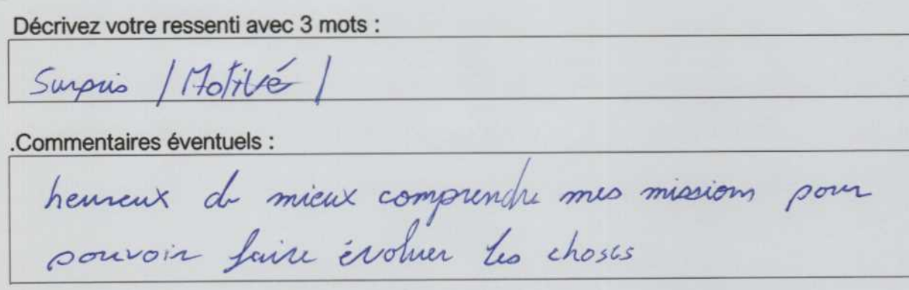 Décrivez votre ressenti avec 3 mots :
Surpris / Motivé /
.Commentaires éventuels :
heureux de mieux comprendre mes missions pour
pouvoir faire évoluer les choses